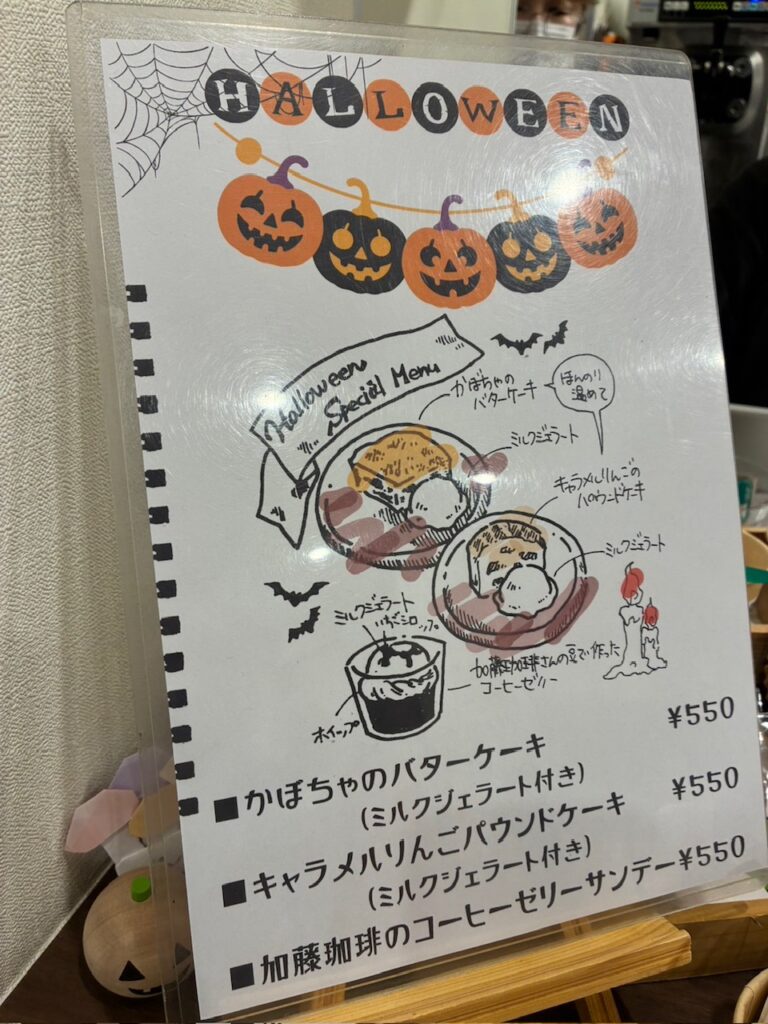 HALLOWEEN
Halloween
Special Menu
かぼちゃの
バターケーキ
ほんのり
温めて
ミルクジェラート
キャラメルりんごの
パウンドケーキ
ミルクジェラート
ミルクジェラート
いちごシロップ
加藤珈琲さんの豆で作った
コーヒーゼリー
ホイップ
■かぼちゃのバターケーキ ¥550
(ミルクジェラート付き)
■キャラメルりんごパウンドケーキ ¥550
(ミルクジェラート付き)
■加藤珈琲のコーヒーゼリーサンデー¥550